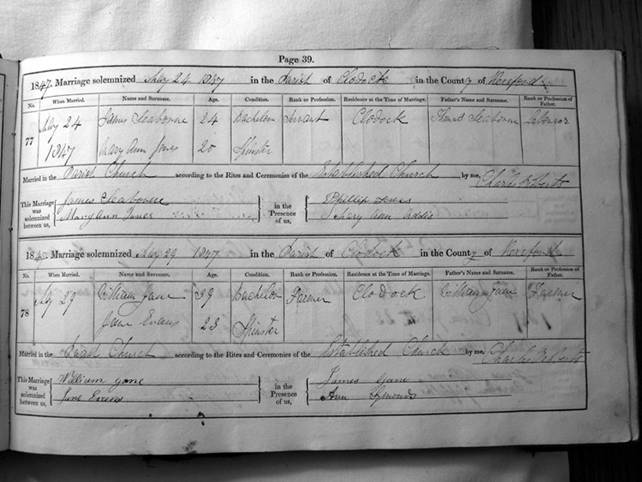 Page 39.
1847. Marriage solemnized May 24 1847 in the Parish of Clodock in the County of Hereford
No. When Married. Name and Surname. Age. Condition. Rank or Profession. Residence at the Time of Marriage. Father's Name and Surname. Rank or Profession of Father.
77 May 24 James Seaborne 24 Bachelor Servant Clodock Seaborne Labourer
1847 Mary Ann Jones 20 Spinster
Married in the Parish Church according to the Rites and Ceremonies of the Established Church by me, Charles Roberts
This Marriage was solemnized between us, James Seaborne in the Presence of us, Phillip Jones
Mary Ann Jones Mary Ann
1847. Marriage solemnized May 29 1847 in the Parish of Clodock in the County of Hereford
No. When Married. Name and Surname. Age. Condition. Rank or Profession. Residence at the Time of Marriage. Father's Name and Surname. Rank or Profession of Father.
78 May 29 William Jane 39 Bachelor Farmer Clodock William Jane Farmer
Jane Evans 23 Spinster
Married in the Parish Church according to the Rites and Ceremonies of the Established Church by me, Charles Roberts
This Marriage was solemnized between us, William Jane in the Presence of us, James Jane
Jane Evans Ann Edmunds